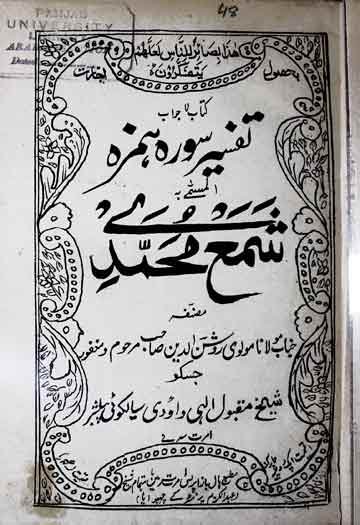 48
PANJAB
UNIVERSITY
هذا بصائر للناس لعلهم
يتفكرون
کتاب لاجواب
تفسیر سورہ ہمزہ
المسمّٰے بہ
شمع محمدی
مصنفہ
جناب مولانا مولوی روشن الدین صاحب مرحوم و مغفور
جسکو
شیخ مقبول الٰہی داؤدی سیالکوٹی پبلشر
امرت سر نے